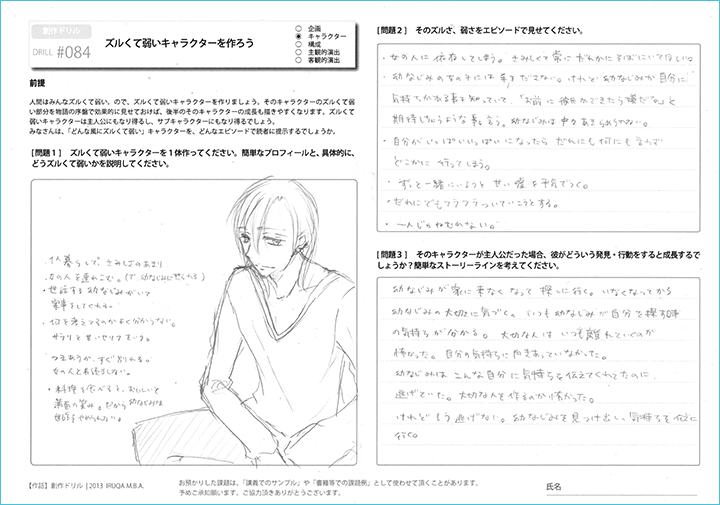 創作ドリル
DRILL #084
ズルくて弱いキャラクターを作ろう
○ 企画
◉ キャラクター
○ 構成
○ 主観的演出
○ 客観的演出
前提
人間はみんなズルくて弱い。ので、ズルくて弱いキャラクターを作りましょう。そのキャラクターのズルくて弱
い部分を物語の序盤で効果的に見せておけば、後半のそのキャラクターの成長も描きやすくなります。ズルくて
弱いキャラクターは主人公にもなり得るし、サブキャラクターにもなり得るでしょう。
みなさんは、「どんな風にズルくて弱い」キャラクターを、どんなエピソードで読者に提示するでしょうか。
[問題1] ズルくて弱いキャラクターを1体作ってください。簡単なプロフィールと、具体的に、
どうズルくて弱いかを説明してください。
・1人暮らしで、さみしさのあまり
女の人を連れこむ。(で、幼なじみに怒られる)
・世話する幼なじみがいて
家事をしてくれる。
・何を考えてるのかよく分からない。
サラリと甘いセリフをいう。
つきあうが、すぐ別れる。
女の人と長続きしない。
・料理を食べると、おいしいと
満面の笑み。だから幼なじみは
世話をやめられない。
[問題2] そのズルさ、弱さをエピソードで見せてください。
・女の人に依存してしまう。さみしくて常にだれかにそばにいてほしい。
・幼なじみの女の子には手をださない。けれど幼なじみが自分に
気持ちがある事を知っていて、「お前に彼氏ができたら嫌だな」と
期待しちゃうような事を言う。幼なじみは中々あきらめられない。
・自分がいっぱいいっぱいになったらだれにも何にも言わず
どこかに行ってしまう。
・ずっと一緒にいようと甘い嘘を平気でつく。
・だれにでもフラフラついていこうとする。
・一人じゃねむれない。
[問題3] そのキャラクターが主人公だった場合、彼がどういう発見・行動をすると成長するで
しょうか?簡単なストーリーラインを考えてください。
幼なじみが家に来なくなって探しに行く。いなくなってから
幼なじみの大切さに気づく。いつも幼なじみが自分を探す時
の気持ちが分かる。大切な人はいつも離れていくのが
怖かった。自分の気持ちに向きあっていなかった。
幼なじみはこんな自分に気持ちを伝えてくれてたのに、
逃げていた。大切な人を作るのが怖かった。
けれどもう逃げない。幼なじみを見つけ出し、気持ちを伝えに
行く。
【作話】創作ドリル | 2013 IRUQA M.B.A.
お預かりした課題は、「講義でのサンプル」や「書籍等での課題例」として使わせて頂くことがあります。
予めご承知願います。ご協力頂きありがとうございます。
氏名